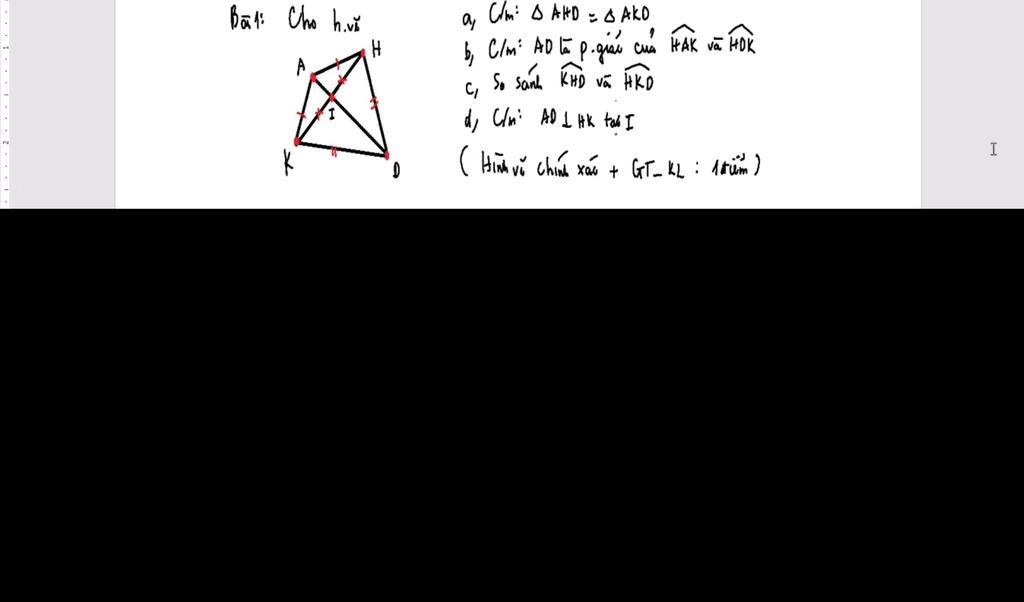 Bài 1: Cho h.vẽ
A
H
I
K
D
a, C/m: Δ AHD = Δ AKD
b, C/m: AD là p.giác của HAK và HDK
c, So sánh KHD và HKD
d, C/m: AD ⊥ HK tại I
( Hình vẽ chính xác + GT_KL : 1 điểm )
1
2